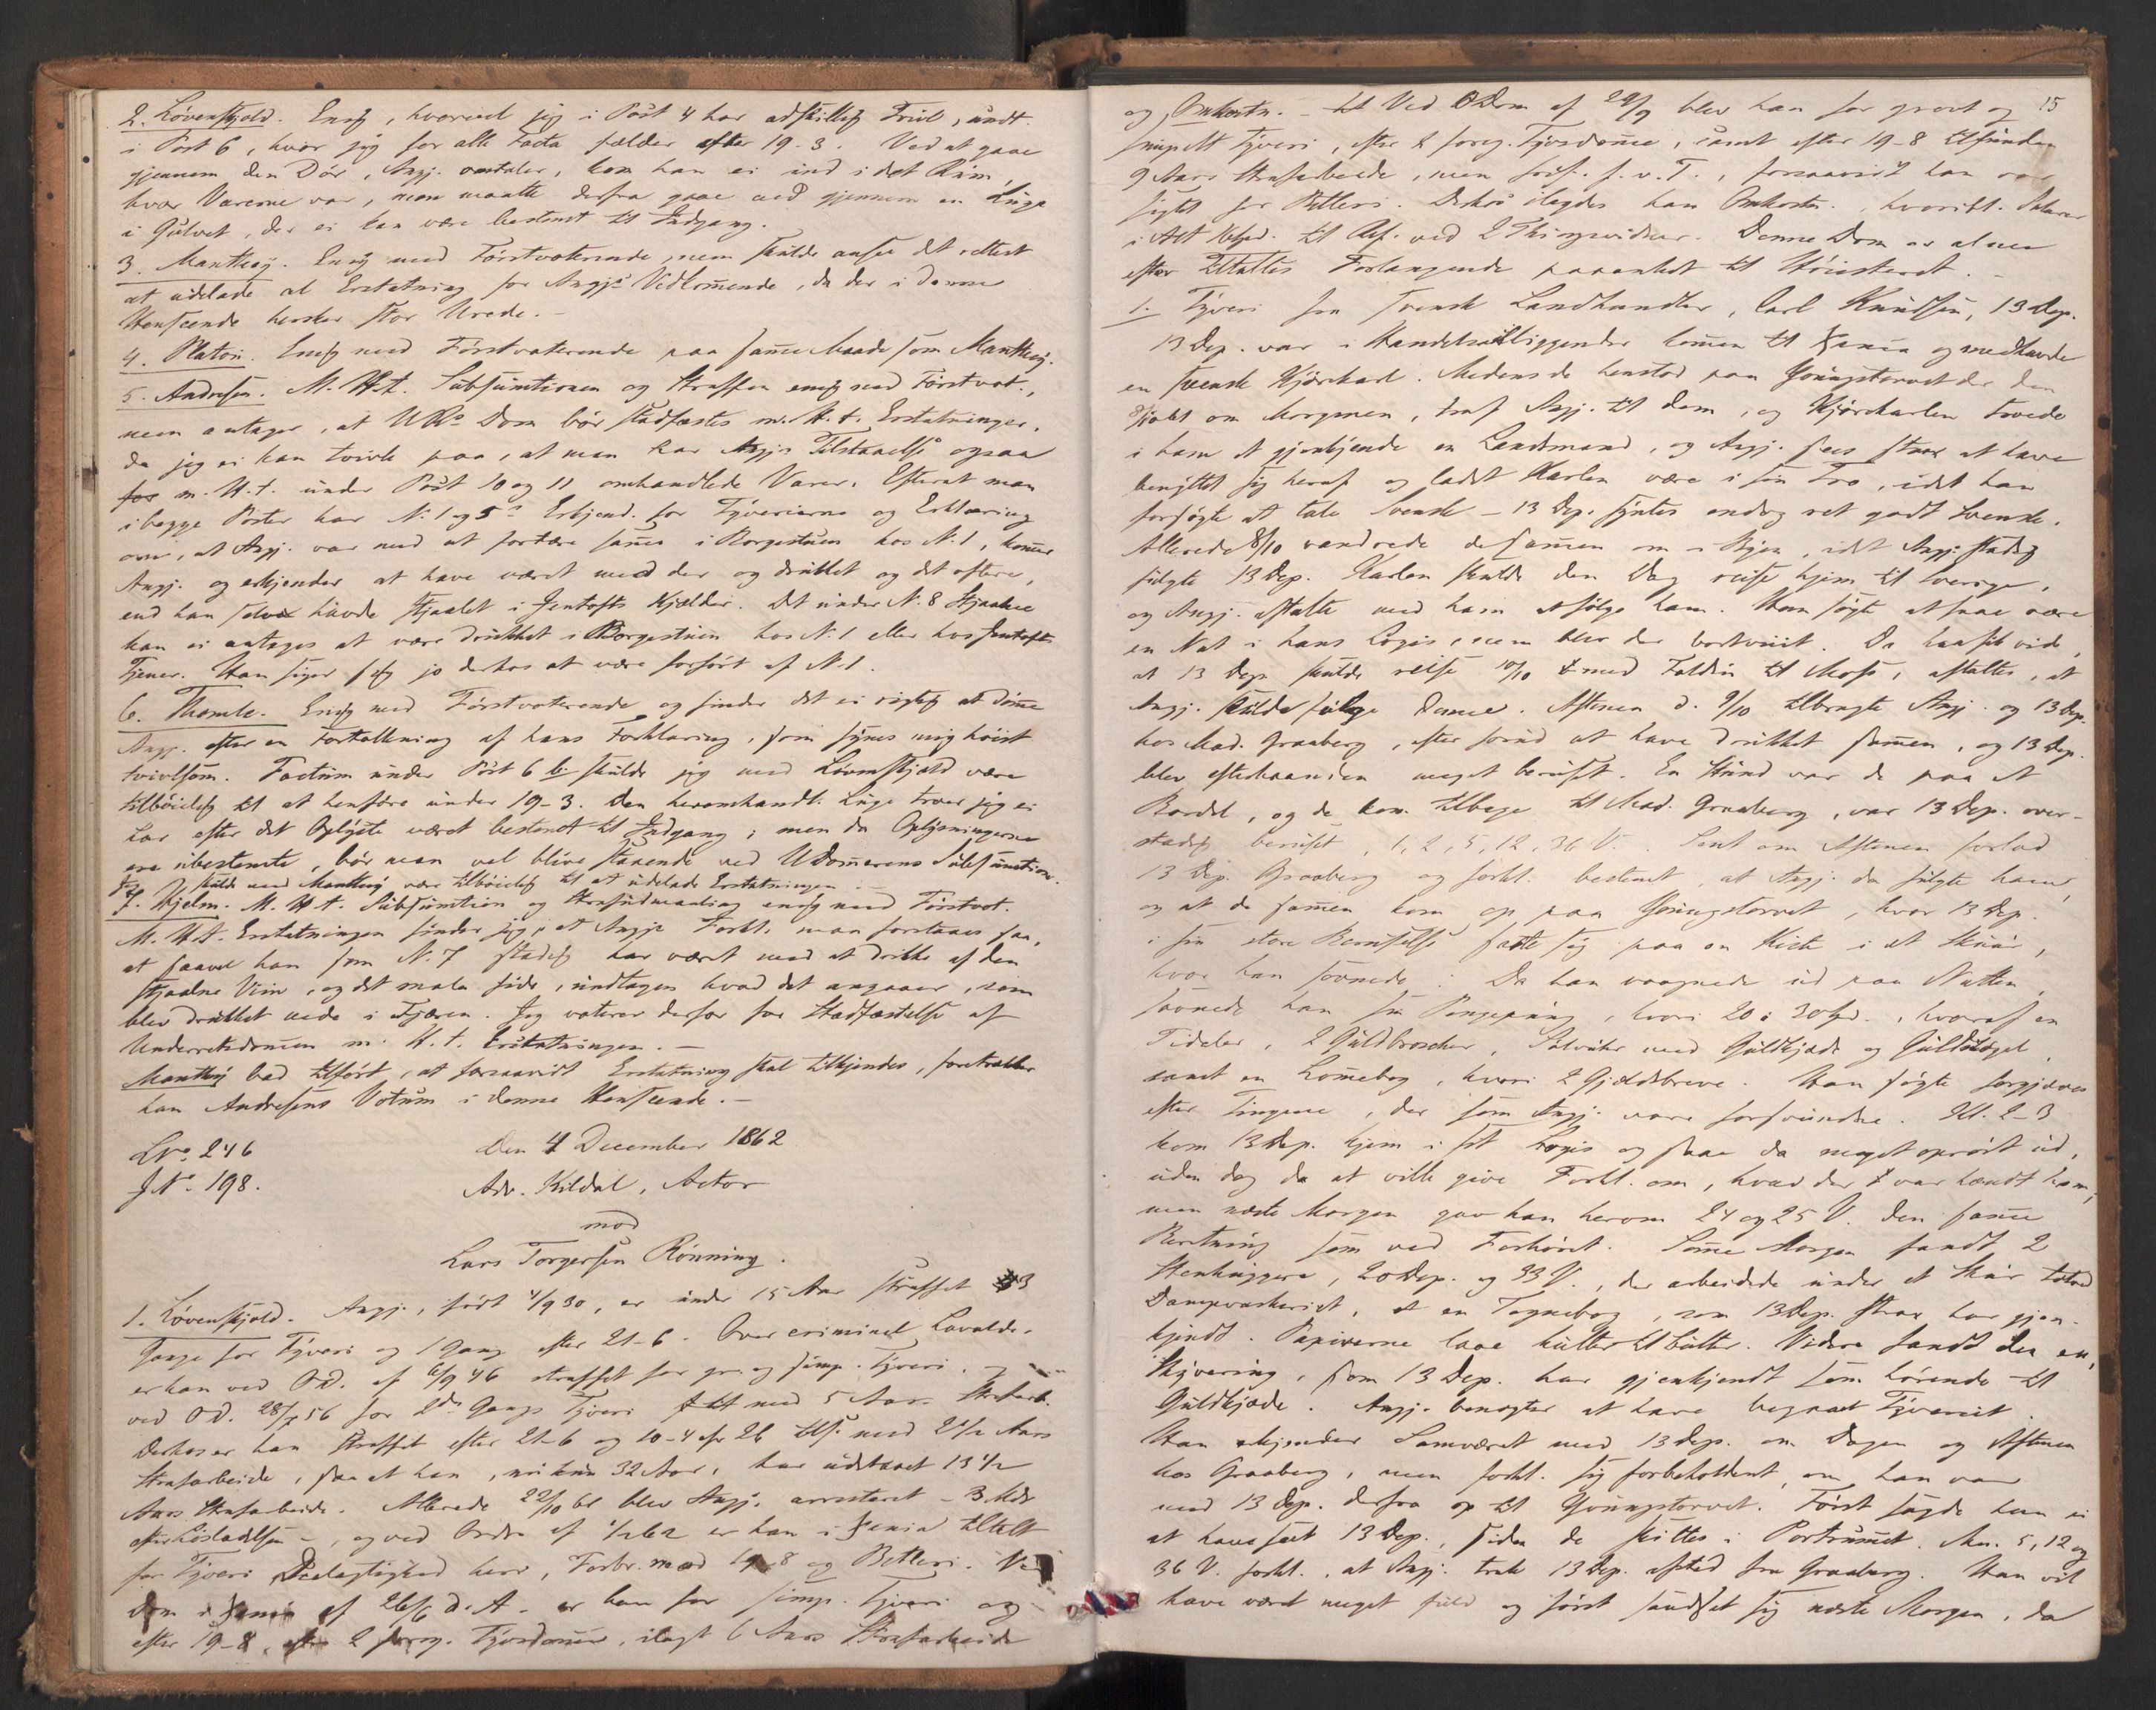 2. Løvenskjold. Enig, hvorvel jeg i Post 4 har adskillig Tvivl, undt.
i Post 6, hvor jeg for alle Facta fælder efter 19-3. Ved at gaae
gjennem den Dör, Angj. omtaler, kom han ei ind i det Rum,
hvor Varerne var, men maatte derfra gaae ned gjennem en Luge
i Gulvet, der ei kan være bestemt til Indgang.
3. Manthey. Enig med Förstvoterende, men skulde ansee det rettest
at udelade al Erstatning for Angjs Vedkommende, da der i denne
Henseende hersker stor Urede. -
4. Platou. Enig med Förstvoterende paa samme Maade som Manthey.
5. Andresen. M. H. t. Subsumtionen og Straffen enig med Förstvot.,
men antager, at URs Dom bör stadfæstes m. H. t. Erstatninger,
da jeg ei kan tvivle paa, at man har Angjs Tilstaaelse ogsaa
for m. H. t. under Post 10 og 11 omhandlede Varer. Efterat man
i begge Poster har N. 1 og 5s Erkjend. for Tyverierne og Erklæring
om, at Angj. var med at fortære samme i Borgestuen hos N. 1, kommer
Angj. og erkjender at have været med der og drukket og det oftere,
end han selv havde stjaalet i Jentofts Kjælder. Det under N. 8 Stjaalne
kan ei antages at være drukket i Borgestuen hos N. 1 eller hos Jentofts
Tjener. Han siger sig jo derhos at være forfört af N. 1.
6. Thomle. Enig med Förstvoterende og finder det ei rigtig at dömme
Angj. efter en Fortolkning af hans Forklaring, som synes mig höist
tvivlsom. Factum under Post 6 b. skulde jeg med Lövenskjold være
tilböielig til at henföre under 19-3. Den heromhandl. Luge troer jeg ei
har efter det Oplyste været bestemt til Indgang; men da Oplysningerne
ere ubestemte, bör man vel blive staaende ved UDommerens Subsumtion.
Jeg skulde med Manthey være tilböielig til at udelade Erstatningen.
7. Hjelm. M. H. t. Subsumtion og Strafudmaaling enig med Förstvot.
M. H. t. Erstatningen finder jeg, at Angjs Forkl. maa forstaaes saa,
at saavel han som N. 7 stadig har været med at drikke af den
stjaalne Viin, og det maa lide, undtagen hvad det angaaer, som
blev drukket nede i Fjæren. Jeg voterer derfor for Stadfæstelse af
Underretsdommen m. H. t. Erstatningen. -
Manthey bad tilfört, at forsaavidt Erstatning skal tilkjendes, foretrækker
han Andresens Votum i denne Henseende. -
LNo. 246 Den 4 December 1862
JNo. 198. Adv. Kildal, Actor
mod
Lars Torgersen Rönning.
1. Lövenskjold. Angj., födt 4/9 30, er under 15 Aar straffet 3
Gange for Tyveri og 1 Gang efter 21-6. Over criminel Lavalder
er han ved OD. af 6/9 46 straffet for gr. og simp. Tyveri, og
ved OD. 28/7 56 for 2den Gangs Tyveri med 5 Aars Strafarb.
Derhos er han straffet efter 21-6 og 10-4 cfr 26 tils. med 2 1/2 Aars
Strafarbeide, saa at han, nu kun 32 Aar, har udstaaet 13 1/2
Aars Strafarbeide. Allerede 22/10 61 blev Angj. arresteret - 3 Mdr
efter Lösladelsen -, og ved Ordre af 1/2 62 er han i Xania tiltalt
for Tyveri, Deelagtighed heri, Forbr. mod 19-8 og Betleri. Ved
Dom i Xania af 26/6 d. A. er han for simp. Tyveri og
efter 19-8, efter 2 foreg. Tyvsdomme, ilagt 6 Aars Strafarbeide
15
og Omkostn. - Ved ODom af 29/9 blev han for grovt og
simpelt Tyveri, efter 2 foreg. Tyvsdomme, samt efter 19-8 tilfunden
9 Aars Strafarbeide, men frif. f. v. T., forsaavidt han var
sigtet for Betleri. Derhos ilagdes han Omkostn., hvoribl. Salarer
i Alt til Act. ved 2 Thingvidner. Denne Dom er alene
efter Tiltaltes Forlangende paaanket til Höiesteret. -
1. Tyveri fra svensk Landhandler, Carl Knudsen, 13 Dep.
13 Dep. var i Handelsanliggender kommen til Xania og medhavde
en svensk Kjörekarl. Medens de henstod paa Youngstorvet der den
8/10 om Morgenen, traf Angj. til dem, og Kjörekarlen troede
i ham at gjenkjende en Landsmand, og Angj. sees strax at have
benyttet sig heraf og ladet Karlen være i sin Tro, idet han
forsögte at tale Svensk - 13 Dep. syntes endog ret godt Svensk.
Allerede 8/10 vandrede de sammen om i Byen, idet Angj. stadig
fulgte 13 Dep. Karlen skulde den Dag reise hjem til Sverige,
og Angj. aftalte med ham at fölge ham. Han sögte at faae være
en Nat i hans Logis, men blev der bortviist. Da han fik vide,
at 13 Dep. skulde reise 10/10 med Foldin til Moss, aftaltes, at
Angj. skulde fölge Denne. Aftenen d. 9/10 tilbragte Angj. og 13 Dep.
hos Mad. Graaberg, efter forud at have drukket sammen, og 13 Dep.
blev efterhaanden meget beruset. En Stund var de paa et
Bordel, og da de kom tilbage til Mad. Graaberg, var 13 Dep. over-
stadig beruset, 1, 2, 5, 12, 36 V. Sent om Aftenen forlod
13 Dep. Graaberg og forkl. bestemt, at Angj. da fulgte ham,
og at de sammen kom op paa Youngstorvet, hvor 13 Dep.
i sin store Beruselse satte sig paa en Kiste i et Skuur,
hvor han sovnede. Da han vaagnede ud paa Natten,
savnede han sin Pengepung, hvori 20 à 30 Spd., hvoraf en
Tidaler, 2 Guldbroscher, Sølvuhr med Guldkjæde og Guldnögel,
samt en Lommebog, hvori 2 Gjældsbreve. Han sögte forgjæves
efter Tingene, der som Angj. vare forsvundne. Kl. 2-3
kom 13 Dep. hjem i sit Logis og saae da meget oprört ud,
uden dog da at ville give Forkl. om, hvad der var hændt ham,
men næste Morgen gav han herom 24 og 25 V. den samme
Beretning som ved Forhöret. Samme Morgen fandt 2
Stenhuggere, 20 Dep. og 33 V., der arbeidede under et Skur
Dampvaskeriet, at en Tegnebog, som 13 Dep. strax har gjen-
kjendt. Papirerne laae hulter til bulter. Videre fandt der en
som 13 Dep. har gjenkjendt som hörende til
Guldkjæde. Angj. benegter at have begaaet Tyveriet.
Han erkjender Samværet med 13 Dep. om Dagen og Aftenen
hos Graaberg, men forkl. sig forbeholdent, om han var
med 13 Dep. derfra op til Youngstorvet. Först sagde han ei
at have seet 13 Dep., siden de skiltes i Portrummet. Men 5, 12 og
36 V. forkl., at Angj. trak 13 Dep. afsted fra Graaberg. Han vil
have været meget fuld og först sandset sig næste Morgen, da